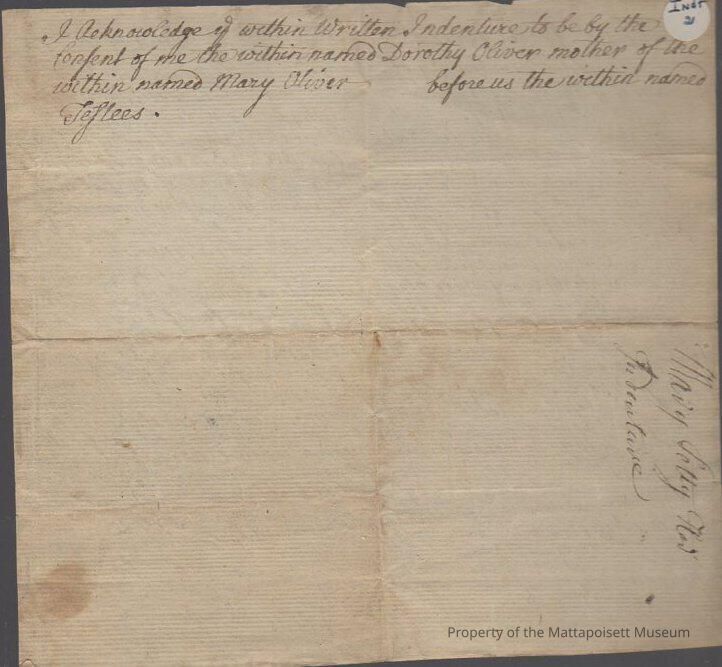 I Acknowledge yᵉ within Written Indenture to be by the
Consent of me the within named Dorothy Oliver mother of the
within named Mary Oliver before us the within named
Testees.
Inst
21
Mary
Indenture
Property of the Mattapoisett Museum